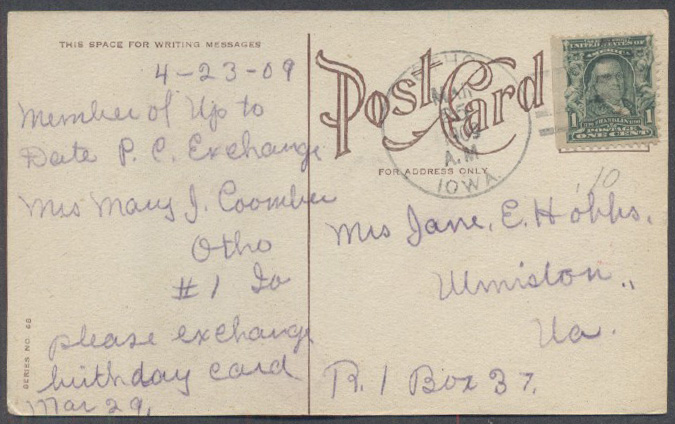 THIS SPACE FOR WRITING MESSAGES
4-23-09
Member of Up to
Date P. C. Exchange
Mrs Mary J. Coomber
Otho
#1 Io
please exchange
birthday card
Mar 29,
SERIES NO. 68
Post Card
FOR ADDRESS ONLY
OTHO
MAR
A.M
IOWA.
UNITED STATES OF
AMERICA
1 FRANKLIN 1
POSTAGE
ONE CENT
10
Mrs Jane. E. Hobbs.
Va.
R. 1 Box 37.